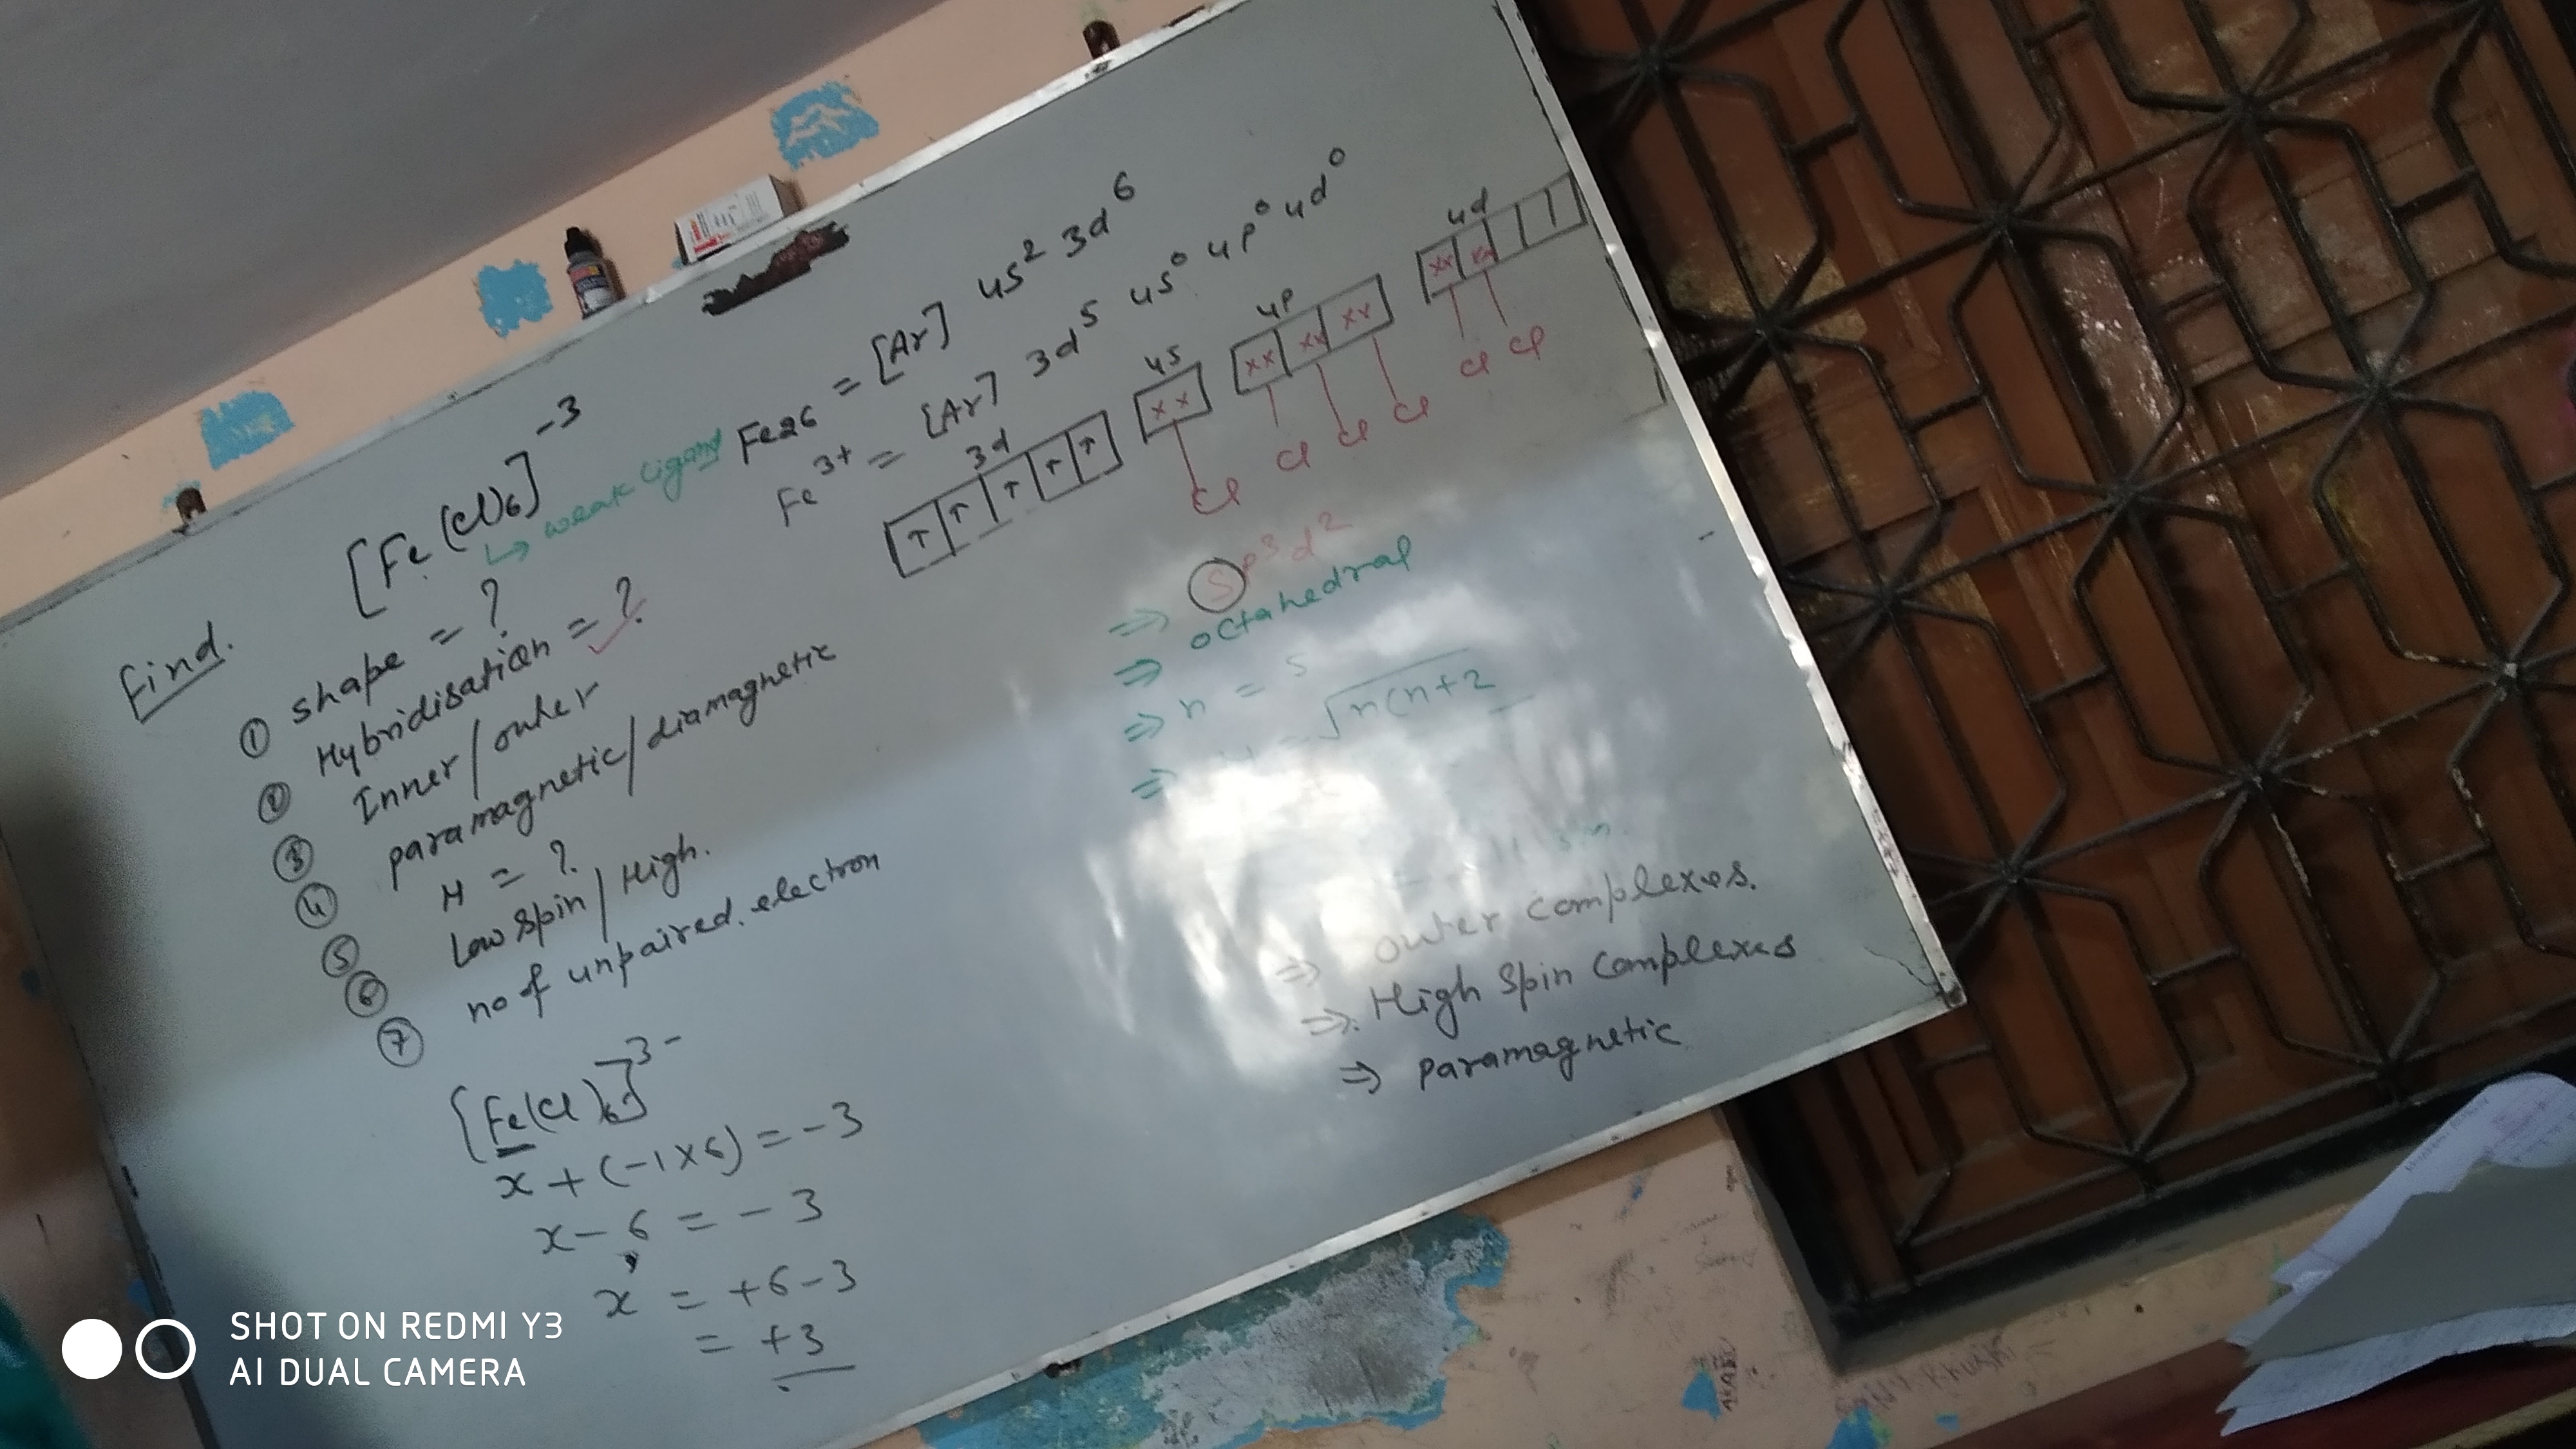 Find.
[Fe(Cl)6]-3
↳ weak ligand
① shape = ?
② Hybridisation = ?
③ Inner/outer
④ paramagnetic/diamagnetic
⑤ M = ?
⑥ Low Spin/High.
⑦ no of unpaired. electron
[Fe(Cl)6]3-
x + (-1×6) = -3
x - 6 = -3
x = +6-3
= +3
Fe26 = [Ar] 4s2 3d6
Fe3+ = [Ar] 3d5 4s0 4p0 4d0
3d 4s 4p 4d
↑ ↑ ↑ ↑ ↑ xx xx xx xx xx xx
Cl Cl Cl Cl Cl Cl
⇒ sp3d2
⇒ octahedral
⇒ n = 5
⇒ √n(n+2
⇒ outer complexes.
⇒ High Spin Complexes
⇒ paramagnetic
SHOT ON REDMI Y3
AI DUAL CAMERA